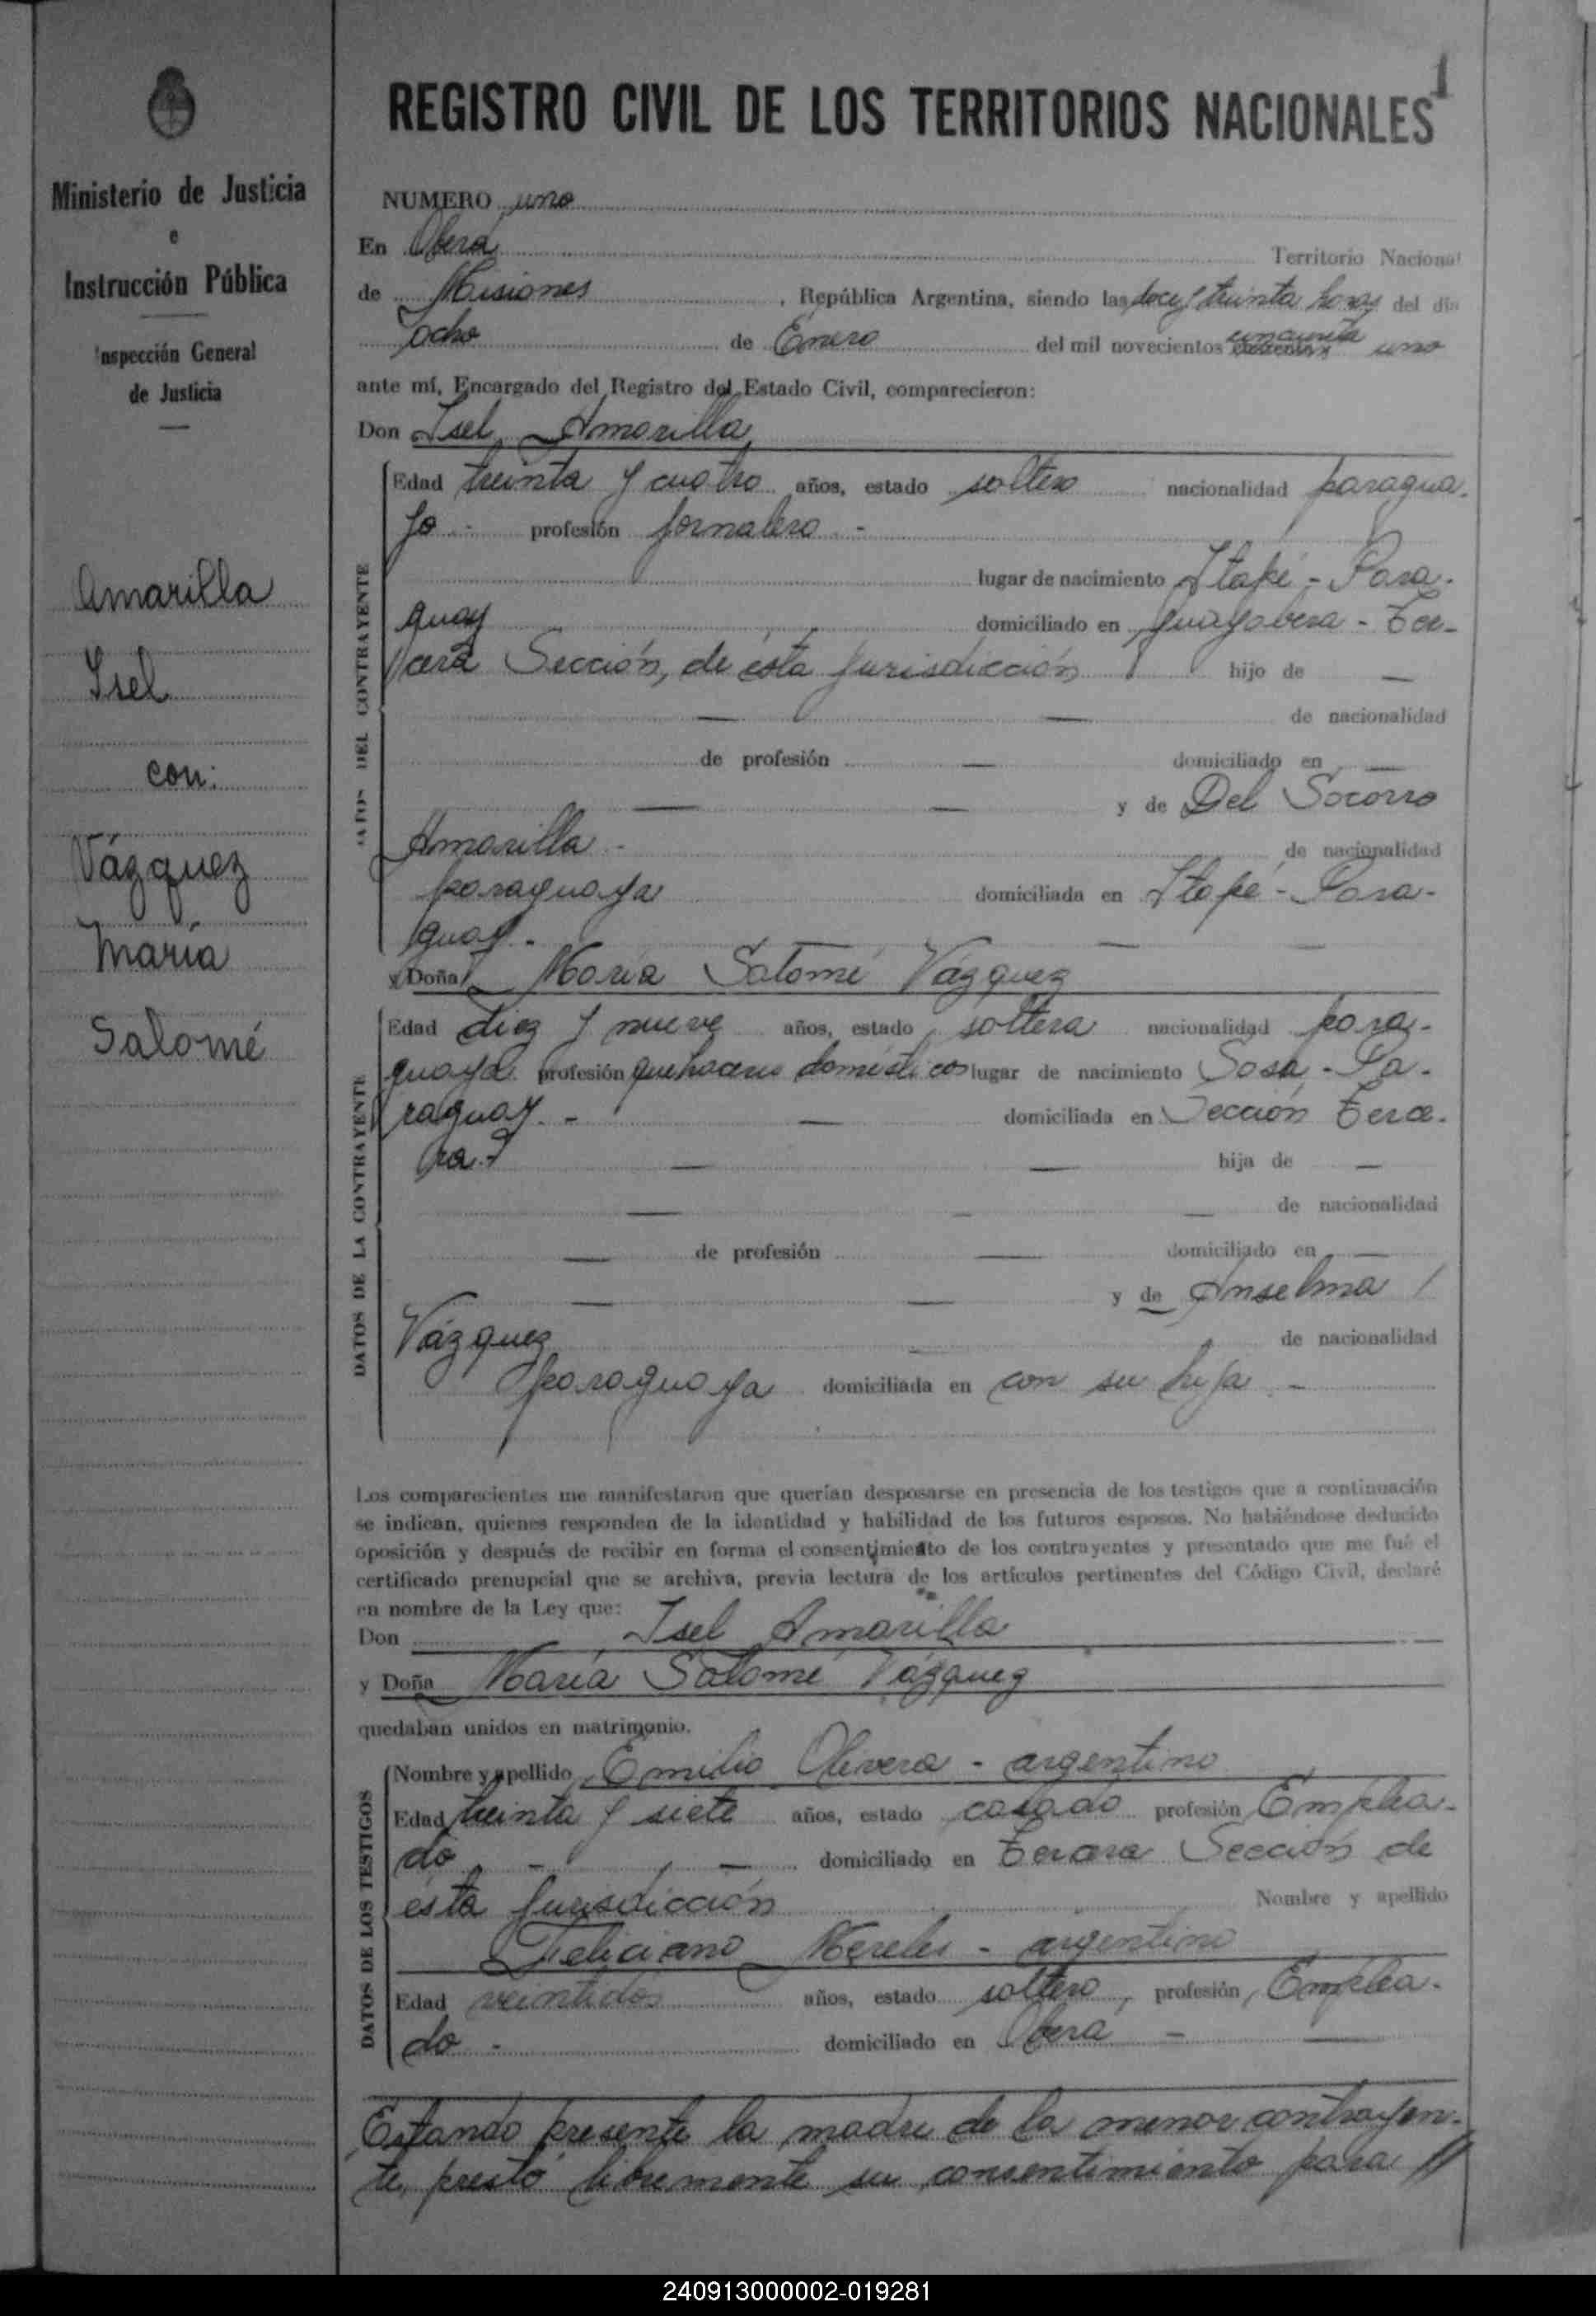 1
REGISTRO CIVIL DE LOS TERRITORIOS NACIONALES
Ministerio de Justicia
e
Instrucción Pública
Inspección General
de Justicia
Amarilla
Isel
con:
Vázquez
María
Salomé
NUMERO uno
En Oberá Territorio Nacional
de Misiones, República Argentina, siendo las doce y treinta horas del día
ocho de Enero del mil novecientos cincuenta uno
ante mí, Encargado del Registro del Estado Civil, comparecieron:
Don Isel Amarilla
DATOS DEL CONTRAYENTE
Edad treinta y cuatro años, estado soltero nacionalidad paragua-
yo - profesión jornalero -
lugar de nacimiento Itapé - Para-
guay domiciliado en guayabera - Ter-
cera Sección, de ésta jurisdicción hijo de —
— — de nacionalidad
de profesión — domiciliado en —
— — y de Del Socorro
Amarilla - de nacionalidad
paraguaya domiciliada en Itapé - Para-
guay. - — —
y Doña María Salomé Vázquez
DATOS DE LA CONTRAYENTE
Edad diez y nueve años, estado soltera nacionalidad para-
guaya profesión quehaceres domésticos lugar de nacimiento Sosa - Pa-
raguay. - — domiciliada en Sección Terce-
ra. - — — hija de —
— — — de nacionalidad
— de profesión — domiciliado en —
— — y de Anselma /
Vázquez — de nacionalidad
paraguaya domiciliada en con su hija -
Los comparecientes me manifestaron que querían desposarse en presencia de los testigos que a continuación
se indican, quienes responden de la identidad y habilidad de los futuros esposos. No habiéndose deducido
oposición y después de recibir en forma el consentimiento de los contrayentes y presentado que me fué el
certificado prenupcial que se archiva, previa lectura de los artículos pertinentes del Código Civil, declaré
en nombre de la Ley que:
Don Isel Amarilla
y Doña María Salomé Vázquez
quedaban unidos en matrimonio.
DATOS DE LOS TESTIGOS
Nombre y apellido Emilio Olivera - argentino
Edad treinta y siete años, estado casado profesión Emplea-
do - — domiciliado en Tercera Sección de
ésta jurisdicción Nombre y apellido
Feliciano Mereles - argentino
Edad veintidos años, estado soltero, profesión, Emplea-
do - domiciliado en Oberá - —
Estando presente la madre de la menor contrayen-
te, prestó libremente su consentimiento para //
240913000002-019281